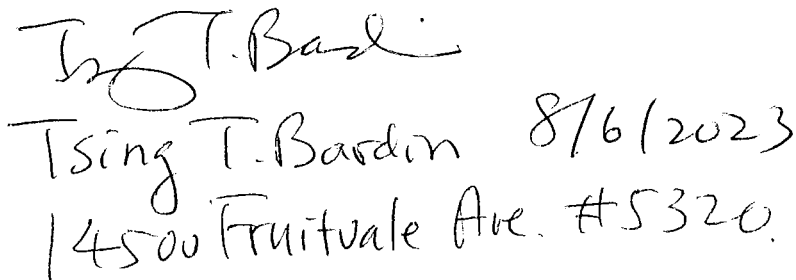 Tsing T. Bardin
Tsing T. Bardin 8/6/2023
14500 Fruitvale Ave. #5320.